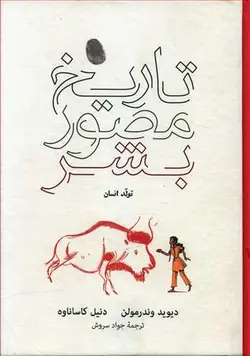 تاریخ
مصور
بشر
تولد انسان
دیوید وندرمولن دنیل کاساناوه
ترجمهٔ جواد سروش